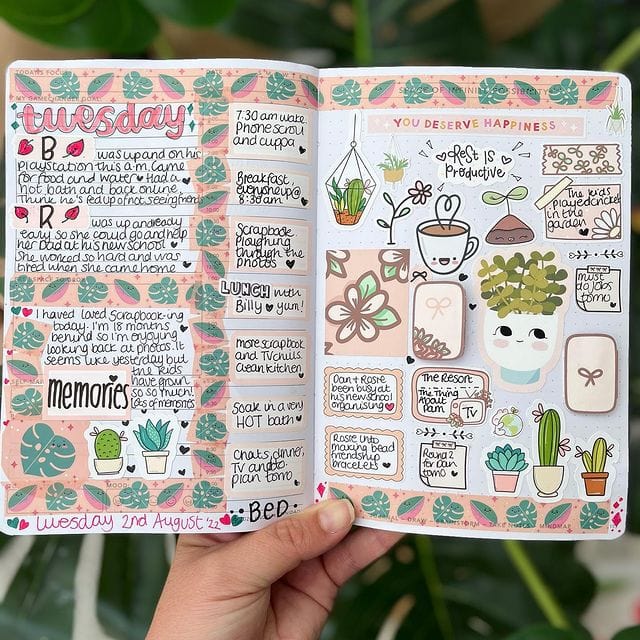 TODAY'S FOCUS
MY GAMECHANGER GOAL
tuesday
B was up and on his
playstation this a.m. Came
for food and water ♥ Had a
hot bath and back online
Think he's fed up of not seeing friends
R was up and ready
early so she could go and help
her Dad at his new school
She worked so hard and was
tired when she came home
I have loved Scrapbook-ing
today. I'm 18 months
behind so I'm enjoying
looking back at photos. It
seems like yesterday but
the kids
have grown
so so much!
memories
MOOD
tuesday 2nd August '22
7.30 am wake
Phone scroll
and cuppa
Breakfast
everyone up @
8.30am
Scrapbook
Plaything
through the
photos
LUNCH with
Billy ♥ yum!
more scrapbook
and TV chills.
Clean kitchen
Soak in a very
HOT bath ♥
Chats, dinner,
TV and to
plan tomo
BED
SPACE OF INFINITE POSSIBILITY
YOU DESERVE HAPPINESS
Rest is
Productive
The kids
played cricket
in the
garden
must
do jobs
tomo
Dan + Rosie
been busy at
his new school
organising
The Resort
The Thing
About
Pam
TV
Rosie into
making bead
friendship
bracelets
Round 2
for Dan
tomo